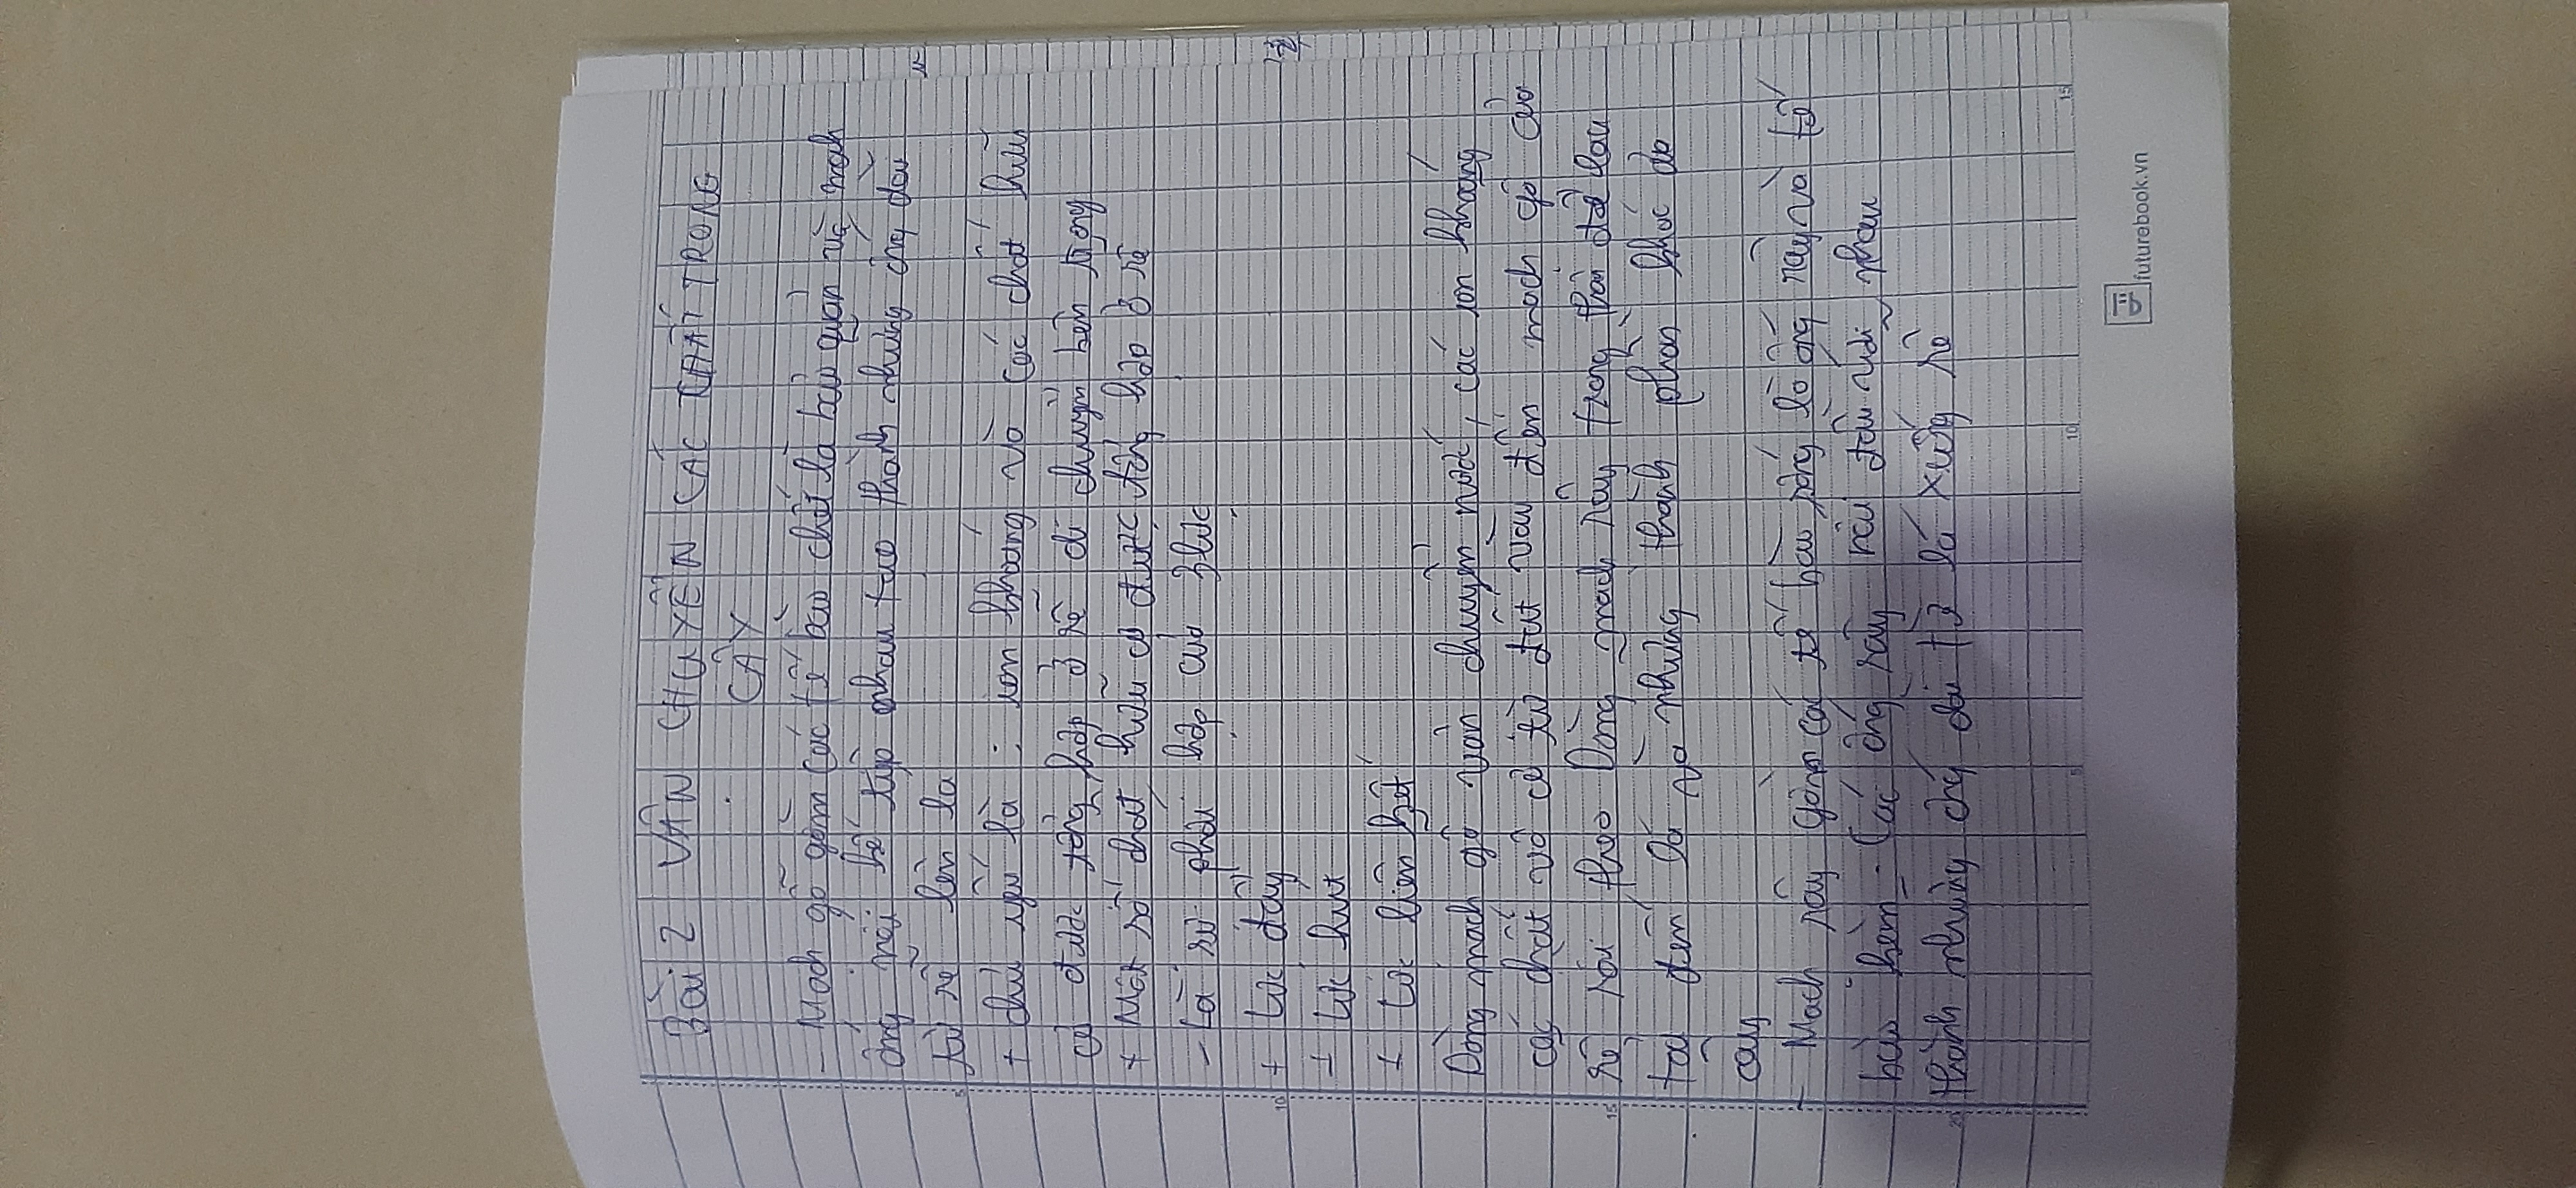 Bài 2 VẬN CHUYỂN CÁC CHẤT TRONG
CÂY
- Mạch gỗ gồm các tế bào chết là bào quản và mạch
ống nối kế tiếp nhau tạo thành những ống dài
từ rễ lên lá
+ chủ yếu là : ion khoáng và các chất hữu
cơ được tổng hợp ở rễ di chuyển bên trong
+ Một số chất hữu cơ được tổng hợp ở rễ
- Là sự phối hợp của 3 lực
+ Lực đẩy
+ Lực hút
+ Lực liên kết
Dòng mạch gỗ vận chuyển nước, các ion khoáng
các chất vô cơ từ đất vào đến mạch gỗ của
rễ rồi theo Dòng mạch này trong thân để lan
tỏa đến lá và những thành phần khác do
cây
- Mạch rây gồm các tế bào sống là ống rây và tế
bào kèm - Các ống rây nối đầu với nhau
thành những ống dài từ lá xuống rễ
5
10
15
20
5
10
15
futurebook.vn